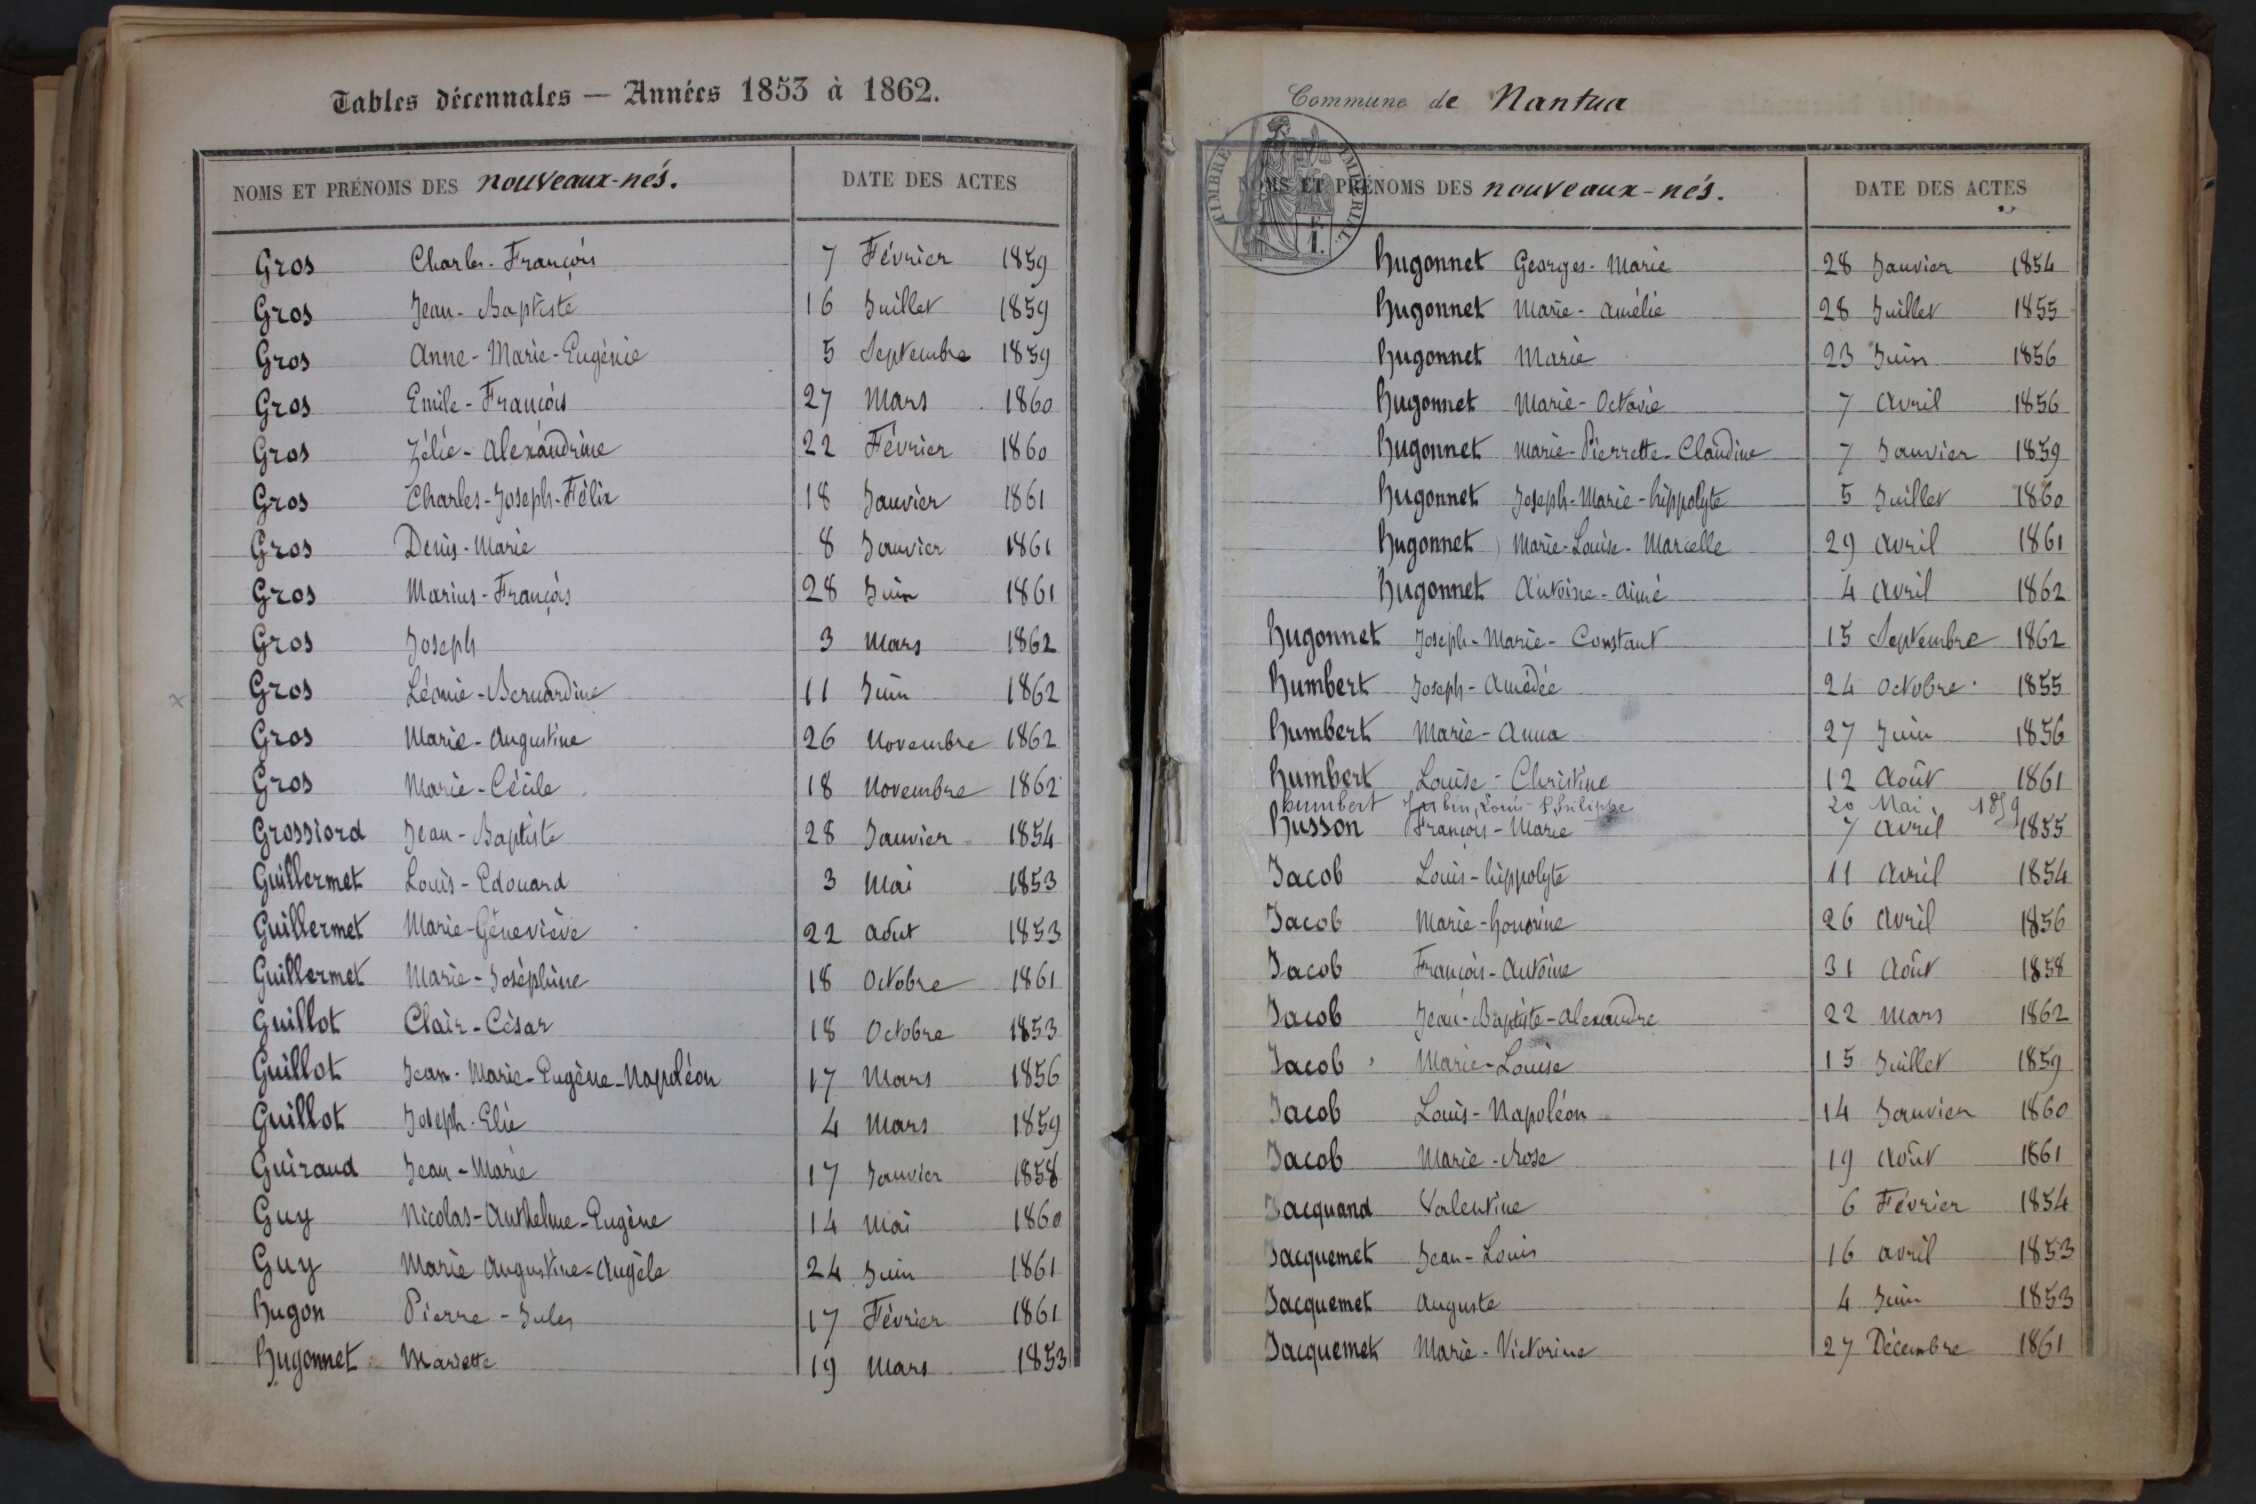 Tables décennales — Années 1853 à 1862.
NOMS ET PRÉNOMS DES nouveaux-nés. DATE DES ACTES
Gros Charles-François 7 Février 1859
Gros Jean-Baptiste 16 Juillet 1859
Gros Anne-Marie-Eugénie 5 Septembre 1859
Gros Emile-François 27 Mars 1860
Gros Zélie-Alexandrine 22 Février 1860
Gros Charles-Joseph-Félix 18 Janvier 1861
Gros Denis-Marie 8 Janvier 1861
Gros Marius-François 28 Juin 1861
Gros Joseph 3 Mars 1862
Gros Léonie-Bernardine 11 Juin 1862
Gros Marie-Augustine 26 Novembre 1862
Gros Marie-Cécile 18 Novembre 1862
Grossiord Jean-Baptiste 28 Janvier 1854
Guillermet Louis-Edouard 3 Mai 1853
Guillermet Marie-Géneviève 22 Août 1853
Guillermet Marie-Joséphine 18 Octobre 1861
Guillot Clair-César 18 Octobre 1853
Guillot Jean-Marie-Eugène-Napoléon 17 Mars 1856
Guillot Joseph-Elie 4 Mars 1859
Guiraud Jean-Marie 17 Janvier 1858
Guy Nicolas-Anthelme-Eugène 14 Mai 1860
Guy Marie Augustine-Angèle 24 Juin 1861
Hugon Pierre-Jules 17 Février 1861
Hugonnet Mariette 19 Mars 1853
Commune de Nantua
TIMBRE IMPÉRIAL
1.
NOMS ET PRÉNOMS DES nouveaux-nés. DATE DES ACTES
Hugonnet Georges-Marie 28 Janvier 1854
Hugonnet Marie-Amélie 28 Juillet 1855
Hugonnet Marie 23 Juin 1856
Hugonnet Marie-Octavie 7 Avril 1856
Hugonnet Marie-Pierrette-Claudine 7 Janvier 1859
Hugonnet Joseph-Marie-hippolyte 5 Juillet 1860
Hugonnet Marie-Louise-Marcelle 29 Avril 1861
Hugonnet Antoine-Aimé 4 Avril 1862
Hugonnet Joseph-Marie-Constant 15 Septembre 1862
Humbert Joseph-Amédée 24 Octobre 1855
Humbert Marie-Anna 27 Juin 1856
Humbert Louise-Christine 12 Août 1861
humbert Jubin, Louis-Philippe 20 Mai 1859
Husson François-Marie 7 Avril 1855
Jacob Louis-hippolyte 11 Avril 1854
Jacob Marie-honorine 26 Avril 1856
Jacob François-Antoine 31 Août 1858
Jacob Jean-Baptiste-Alexandre 22 Mars 1862
Jacob Marie-Louise 15 Juillet 1859
Jacob Louis-Napoléon 14 Janvier 1860
Jacob Marie-Rose 19 Août 1861
Jacquand Valentine 6 Février 1854
Jacquemet Jean-Louis 16 Avril 1853
Jacquemet Auguste 4 Juin 1853
Jacquemet Marie-Victorine 27 Décembre 1861